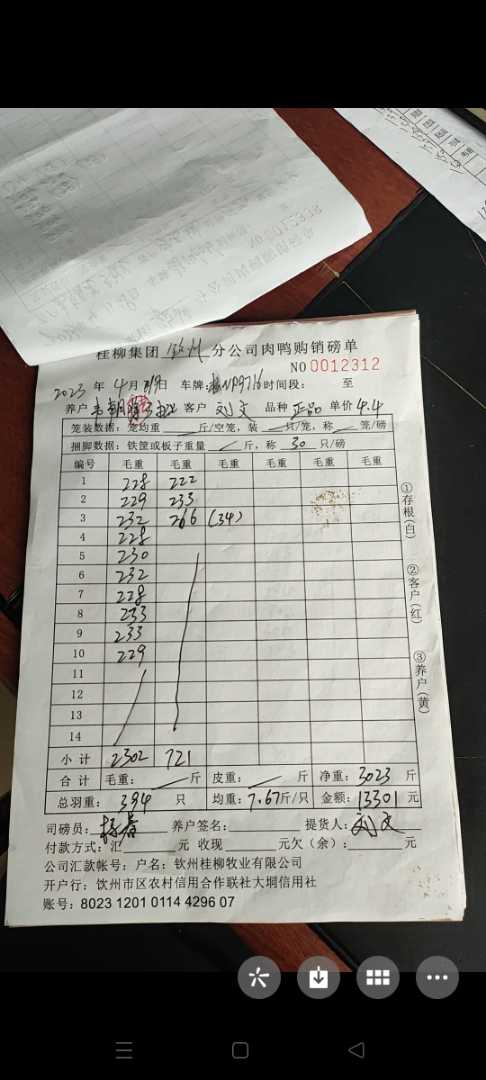 桂柳集团 钦州 分公司肉鸭购销磅单
NO 0012312
2023 年 4 月 日 车牌: 时间段: 至
养户 客户 刘文 品种 正品 单价 4.4
笼装数据: 笼均重 斤/空笼, 装 只/笼, 称 笼/磅
捆脚数据: 铁筐或板子重量 斤, 称 30 只/磅
编号 毛重 毛重 毛重 毛重 毛重 毛重
1 228 222
2 229 233
3 232 266 (34)
4 228
5 230
6 232
7 228
8 233
9 233
10 229
11
12
13
14
小计 2302 721
合计 毛重: 斤 皮重: 斤 净重: 3023 斤
总羽重: 394 只 均重: 7.67斤/只 金额: 13301 元
司磅员: 养户签名: 提货人: 刘文
付款方式: 汇 元 收现 元欠(余): 元
公司汇款帐号: 户名: 钦州桂柳牧业有限公司
开户行: 钦州市区农村信用合作联社大垌信用社
账号: 8023 1201 0114 4296 07
①存根(白)
②客户(红)
③养户(黄)